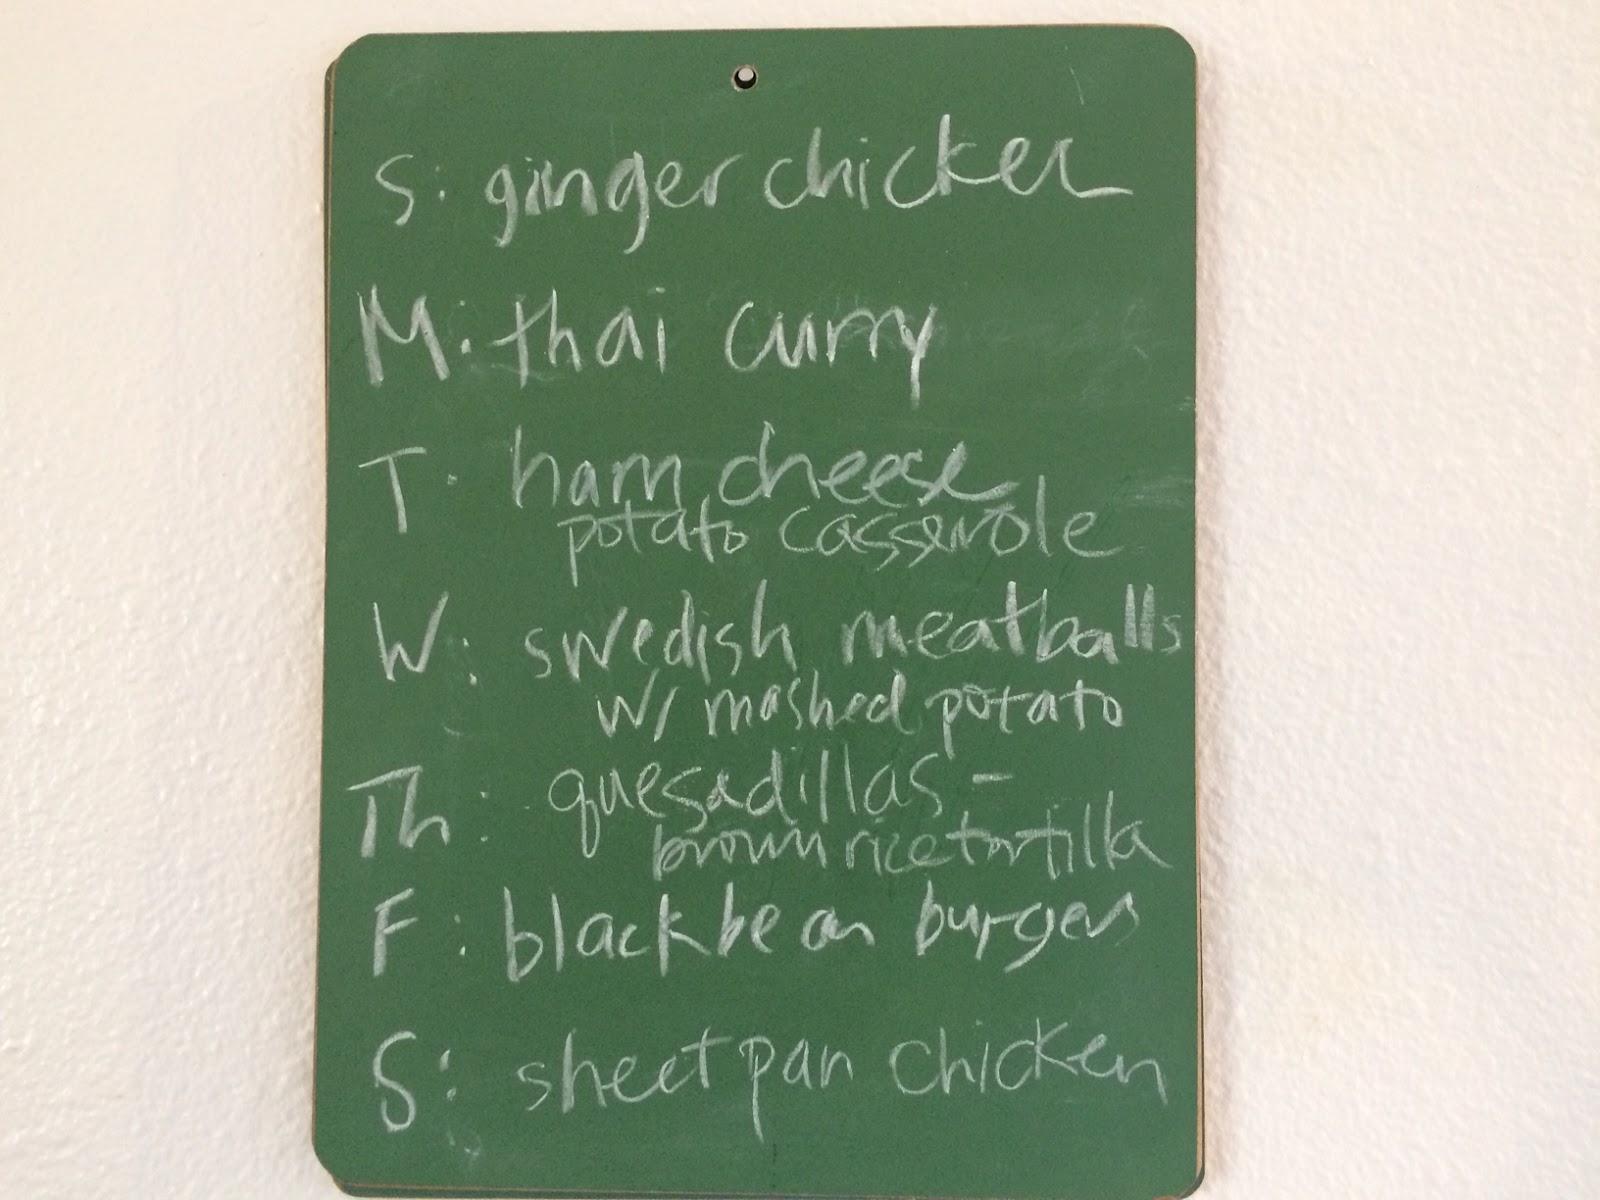 S: ginger chicken
M: thai curry
T: ham cheese
potato casserole
W: swedish meatballs
w/ mashed potato
Th: quesadillas -
brown rice tortilla
F: black bean burgers
S: sheet pan chicken